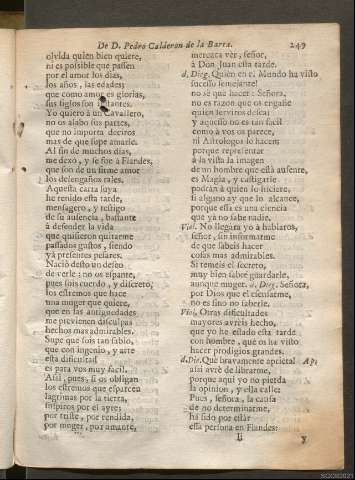 De D. Pedro Calderon de la Barca. 249
olvida quien bien quiere,
ni es possible que passen
por el amor los dias,
los años, las edades;
que como amor es glorias,
sus siglos son instantes.
Yo quiero à un Cavallero,
no os alabo sus partes,
que no importa deziros
mas de que supe amarle.
Al fin de muchos dias,
me dexò, y se fue à Flandes,
que son de un firme amor
los desengaños tales.
Aquesta carta suya
he tenido esta tarde,
mensagero, y testigo
de su ausencia, bastante
à defender la vida
que quisieron quitarme
passados gustos, siendo
yà presentes pesares.
Naciò desto un deseo
de verle; no os espante,
pues sois cuerdo, y discreto,
los estremos que hace
una muger que quiere,
que en las antiguedades
me previenen disculpas
hechos mas admirables.
Supe que sois tan sabio,
que con ingenio, y arte
esta dificultad
es para vos muy facil.
Assi, pues, si os obligan
los estremos que esparcen
lagrimas por la tierra,
suspiros por el ayre;
por triste, por rendida,
por muger, por amante,
merezca vèr, señor,
à Don Juan esta tarde.
d. Dieg. Quien en el Mundo ha visto
sucesso semejante!
no sè què hacer: Señora,
no es razon que os engañe
quien serviros desea:
y aquesso no es tan facil
como à vos os parece,
ni Astrologos lo hacen;
porque representar
à la vista la imagen
de un hombre que està ausente,
es Magia, y castigarle
podràn à quien lo hiciere,
si alguno ay que lo alcance,
porque essa es una ciencia
que yà no sabe nadie.
Viol. No llegàra yo à hablaros,
señor, sin informarme
de que sabeis hacer
cosas mas admirables.
Si temeis el secreto,
muy bien sabrè guardarle,
aunque muger. d. Dieg. Señora,
por Dios que el escusarme,
no es sino no saberle.
Viol. Otras dificultades
mayores avreis hecho,
que yo he estado esta tarde
con hombre, que os ha visto
hacer prodigios grandes.
d. Die. Que bravamente aprieta! Ap.
assi avrè de librarme,
porque aqui yo no pierda
la opinion, y ella calle:
Pues, señora, la causa
de no determinarme,
ha sido por estàr
essa persona en Flandes:
Ii y